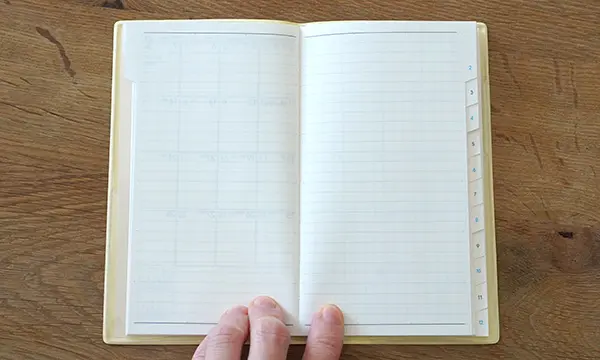 2
3
4
5
6
7
8
9
10
11
12